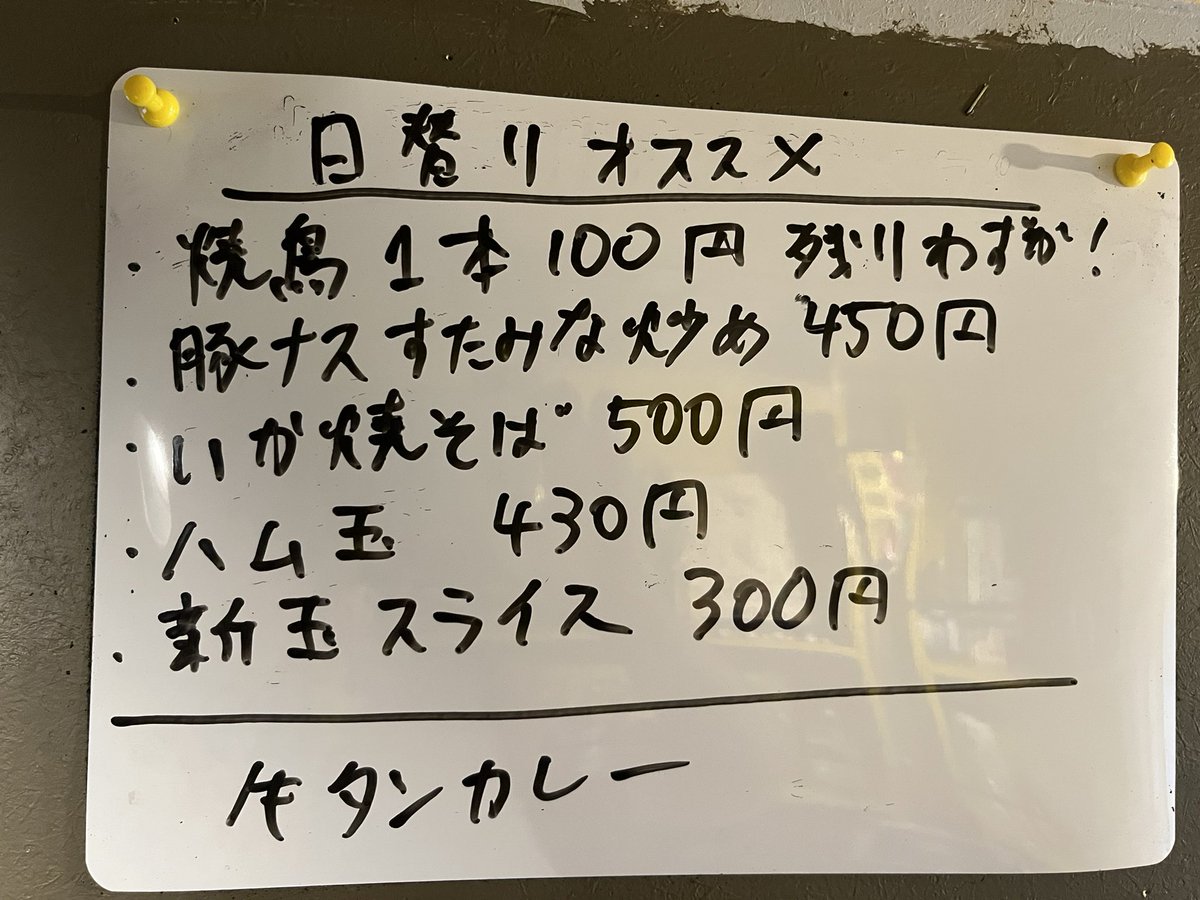 日替りオススメ
・焼鳥1本100円 残りわずか!
・豚ナスすたみな炒め 450円
・いか焼そば 500円
・ハム玉 430円
・新玉スライス 300円
牛タンカレー